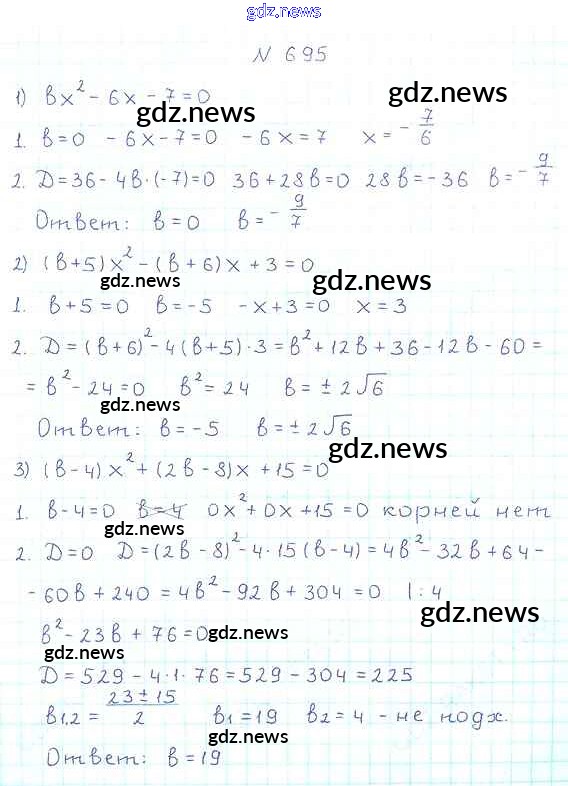 gdz.news
N 695
1) bx² - 6x - 7 = 0
gdz.news gdz.news
1. b = 0 - 6x - 7 = 0 - 6x = 7 x = - 7/6
2. D = 36 - 4b·(-7) = 0 36 + 28b = 0 28b = - 36 b = - 9/7
Ответ: b = 0 b = - 9/7
2) (b+5)x² - (b+6)x + 3 = 0
gdz.news gdz.news
1. b + 5 = 0 b = -5 - x + 3 = 0 x = 3
2. D = (b+6)² - 4(b+5)·3 = b² + 12b + 36 - 12b - 60 =
= b² - 24 = 0 b² = 24 b = ± 2√6
gdz.news
Ответ: b = -5 b = ± 2√6
gdz.news
3) (b-4)x² + (2b-8)x + 15 = 0
1. b - 4 = 0 b = 4 0x² + 0x + 15 = 0 корней нет
gdz.news
2. D = 0 D = (2b-8)² - 4·15(b-4) = 4b² - 32b + 64 -
- 60b + 240 = 4b² - 92b + 304 = 0 |:4
gdz.news
b² - 23b + 76 = 0 gdz.news
gdz.news
D = 529 - 4·1·76 = 529 - 304 = 225
b1,2 = (23 ± 15)/2 b1 = 19 b2 = 4 - не подх.
gdz.news
Ответ: b = 19